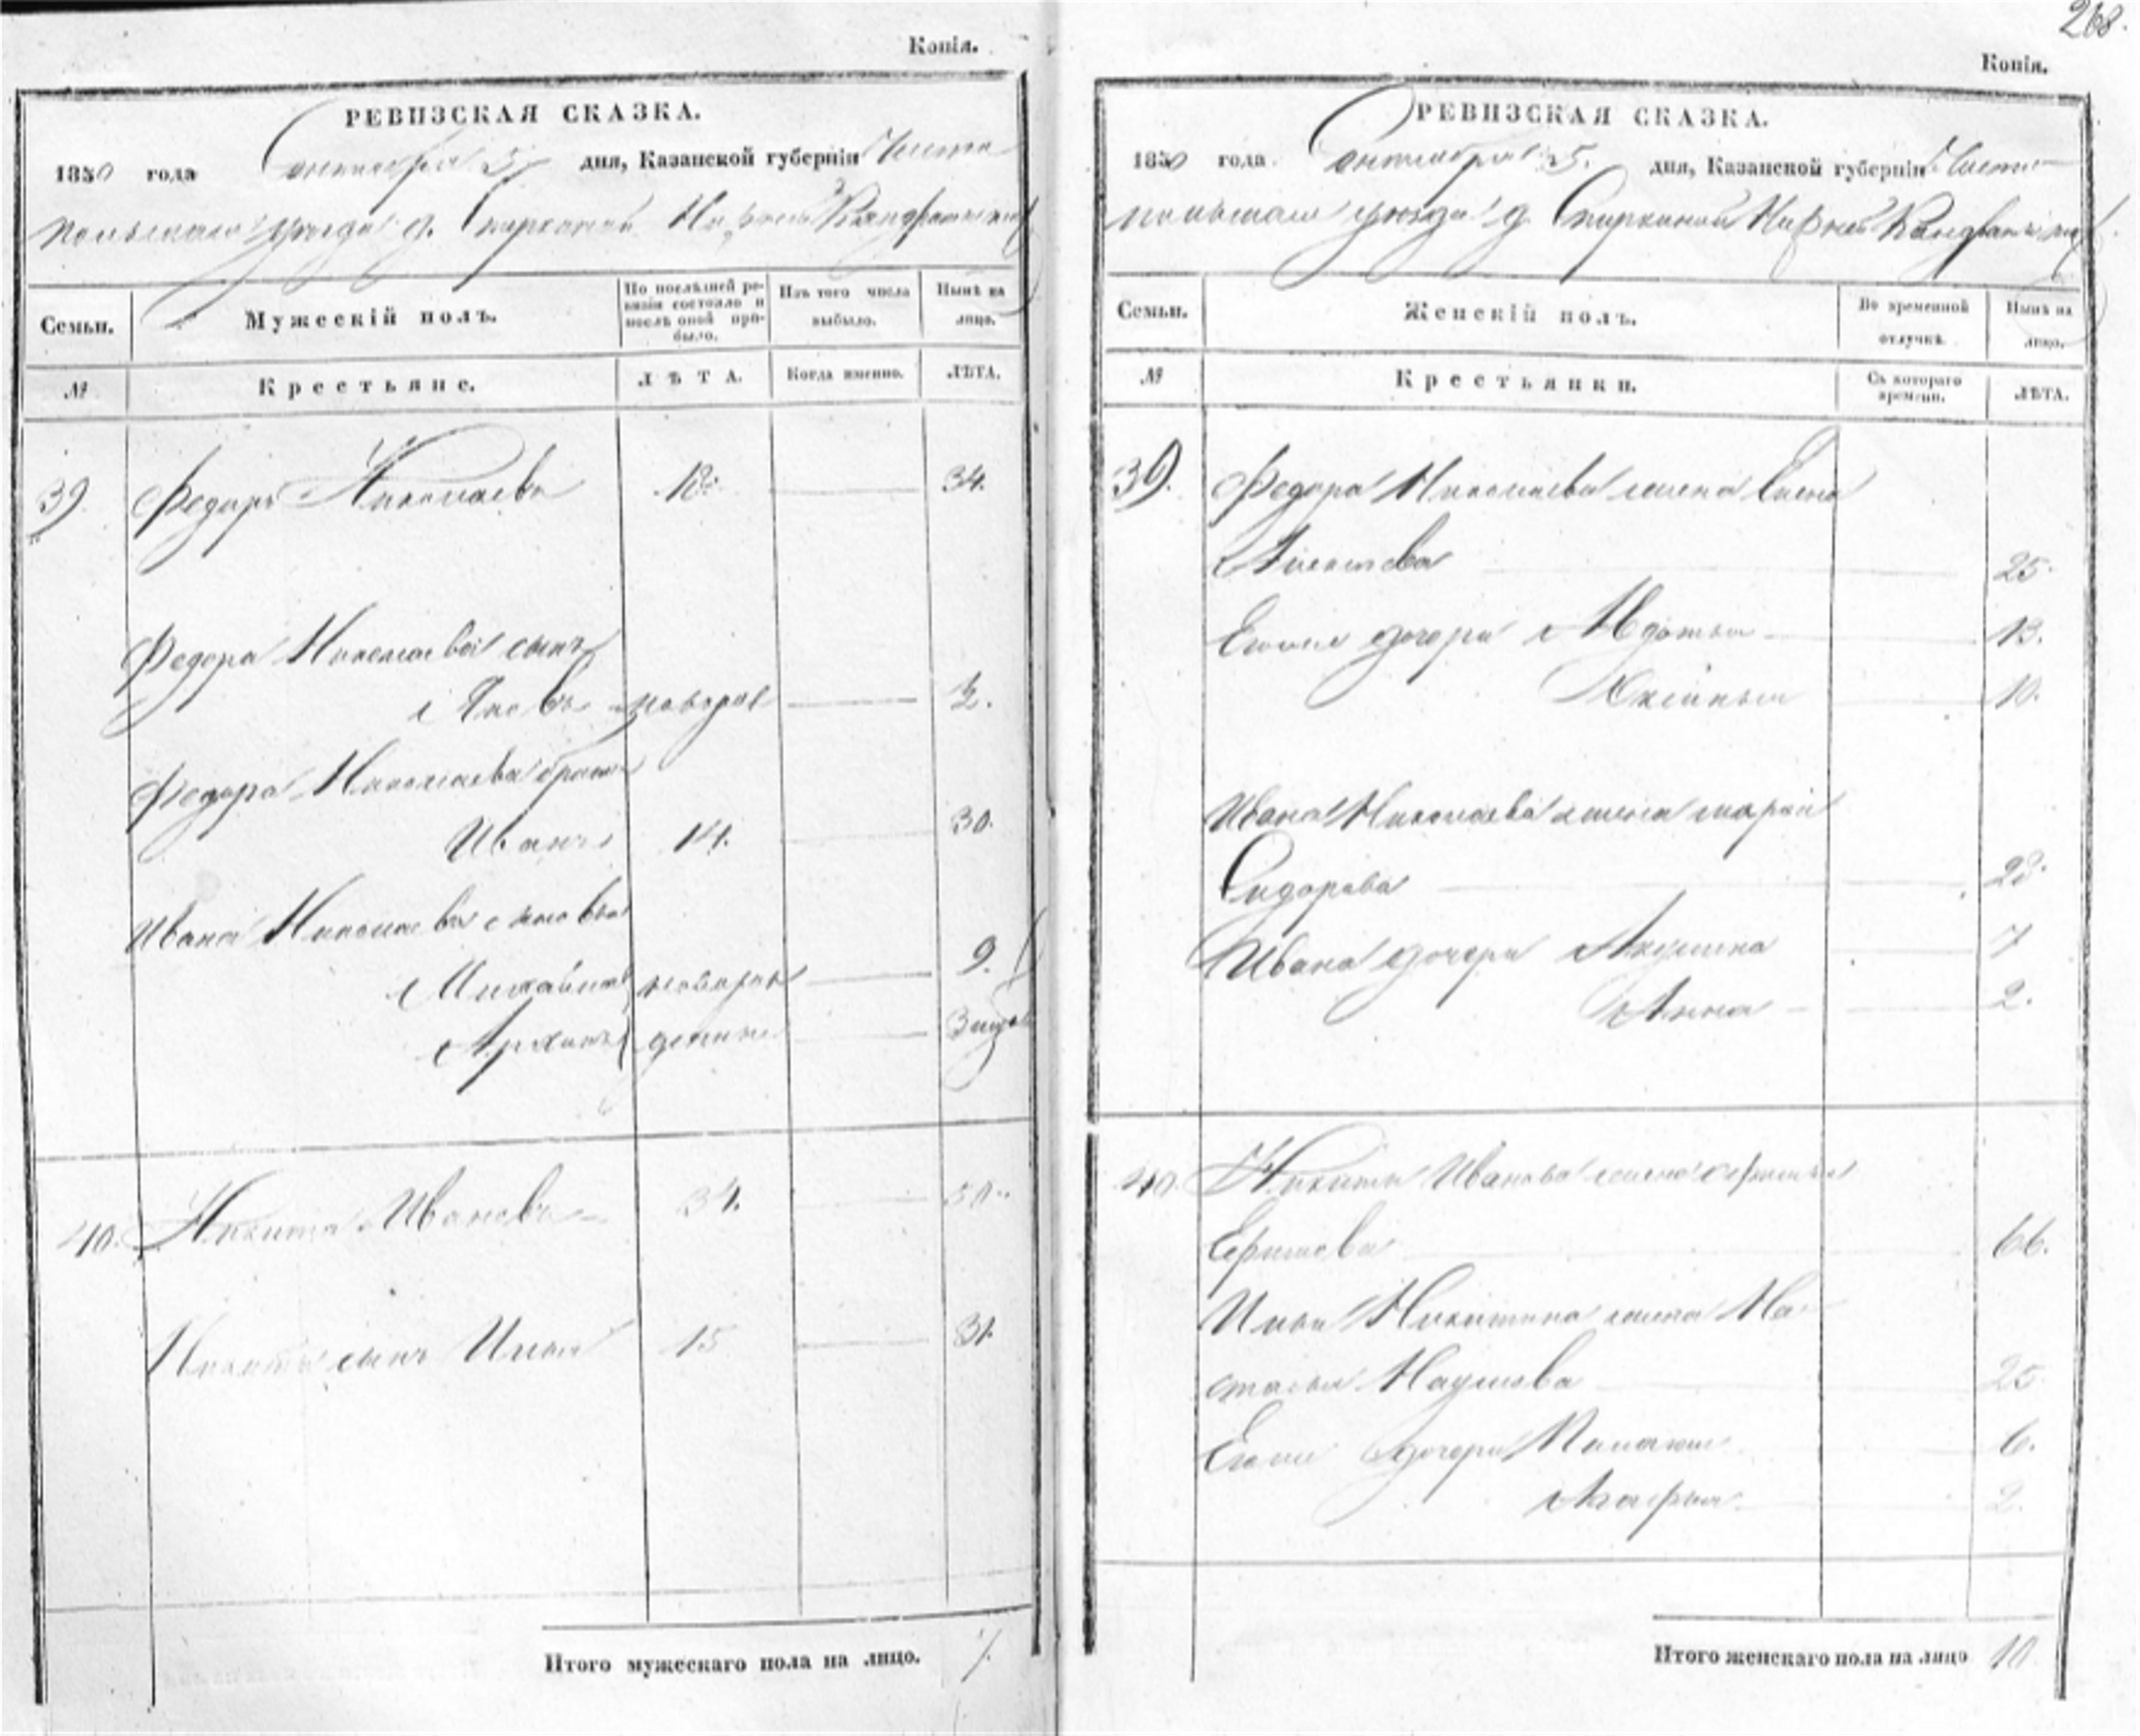 Копія.
РЕВИЗСКАЯ СКАЗКА.
1850 года Сентября 5 дня, Казанской губерніи Чисто
польскаго уѣзда д.
Семьи.
Мужескій полъ.
По послѣдней ре-
визіи состояло и
послѣ оной при-
было.
Изъ того числа
выбыло.
Нынѣ на
лицо.
№
Крестьяне.
ЛѢТА.
Когда именно.
ЛѢТА.
39. Федоръ Николаевъ 18. 34.
Федора Николаева сынъ
Яковъ новорож ½.
Федора Николаева братъ
Иванъ 14. 30.
Ивана Николаева сыновья
Михайла новорож 9.
Архипъ денные
40. Никита Ивановъ 34. 50.
Никиты сынъ Илья 15 31.
Итого мужескаго пола на лицо. 7.
268.
Копія.
РЕВИЗСКАЯ СКАЗКА.
1850 года Сентября 5. дня, Казанской губерніи Чисто
польскаго уѣзда д.
Семьи.
Женскій полъ.
Во временной
отлучкѣ.
Нынѣ на
лицо.
№
Крестьянки.
Съ котораго
времени.
ЛѢТА.
39. Федора Николаева жена Елена
25.
Ево дочери Авдотья 13.
Аксинья 10.
Ивана Николаева жена Марья
Сидорова 28.
Ивана дочери Акулина 7
Анна 2.
40. Никиты Иванова жена
66.
Ильи Никитина жена На
стасья Наумова 25
Ево дочери 6.
Агафья 2.
Итого женскаго пола на лицо 10